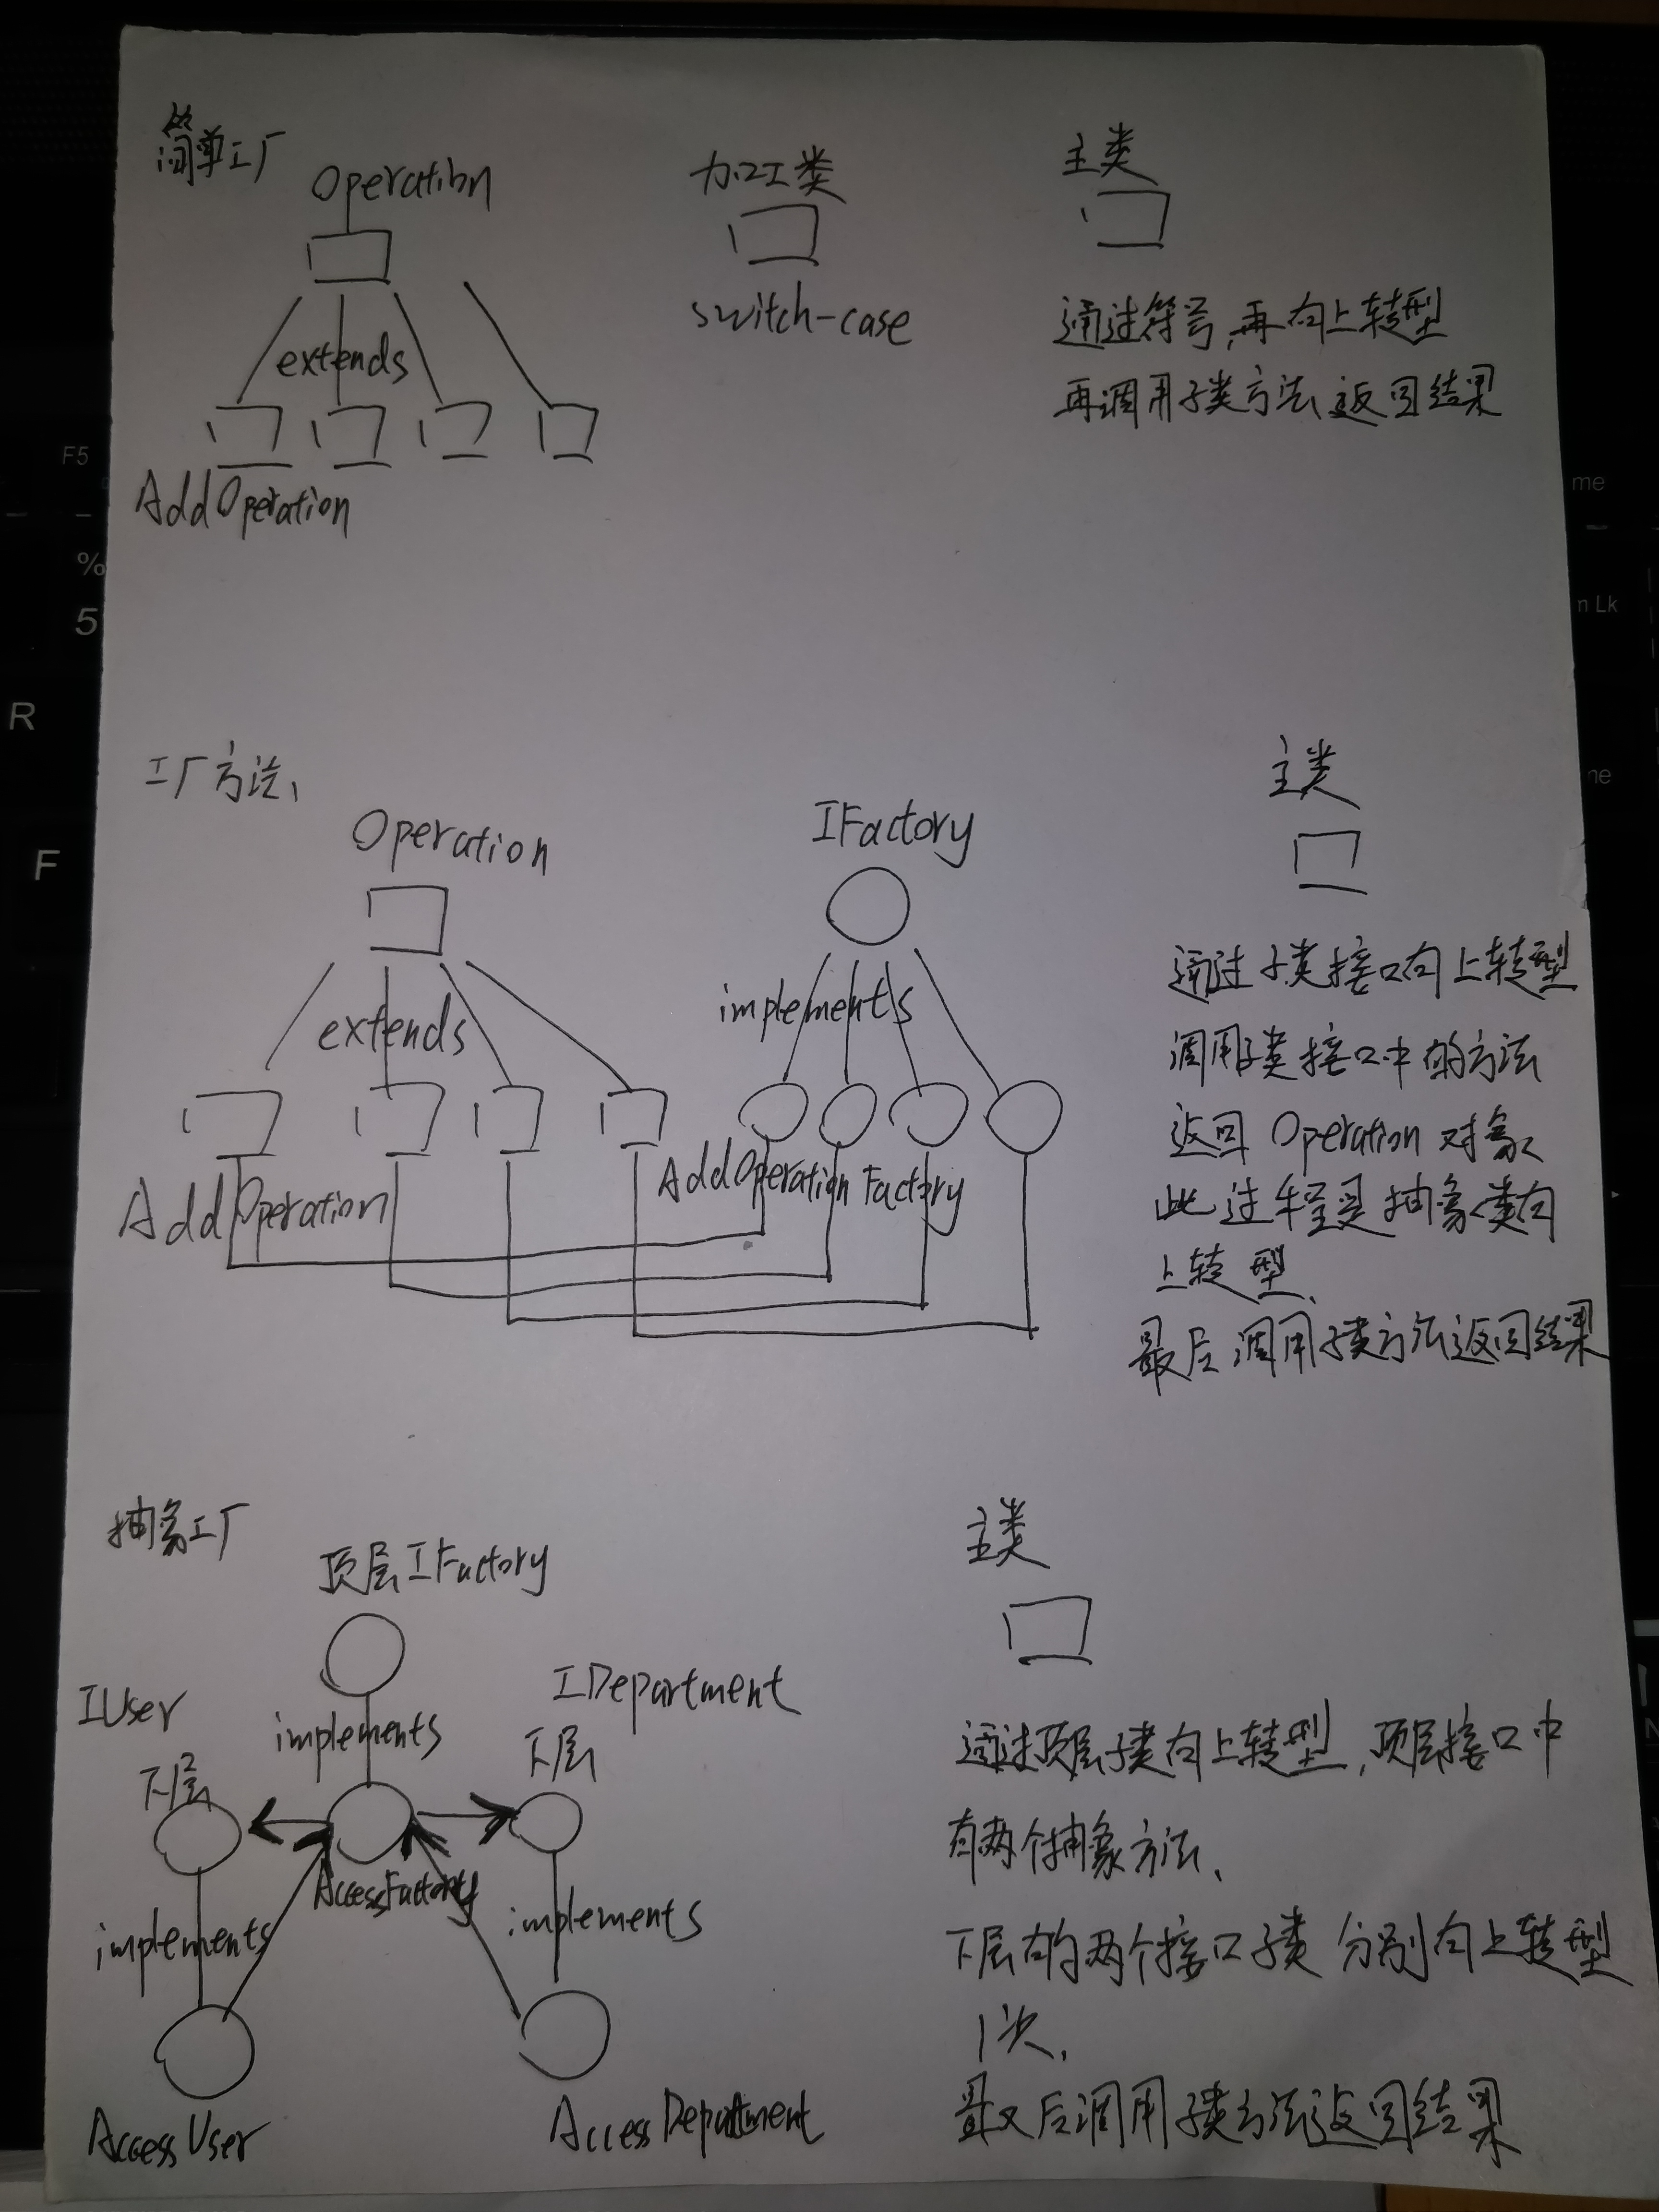 简单工厂
Operation
加工类
主类
switch-case
extends
AddOperation
通过符号,再向上转型
再调用子类方法返回结果
工厂方法、
Operation
IFactory
主类
extends
implements
AddOperation
AddOperation Factory
通过子类接口向上转型
调用子类接口中的方法
返回 Operation 对象
此过程是抽象类向
上转型、
最后调用子类方法返回结果
抽象工厂
顶层IFactory
主类
IUser
implements
IDepartment
下层
下层
AccessFactory
implements
implements
AccessUser
AccessDepartment
通过顶层子类向上转型,顶层接口中
有两个抽象方法、
下层有的两个接口子类分别向上转型
1次,
最后调用子类方法返回结果
F5
%
5
R
F
me
n Lk
me